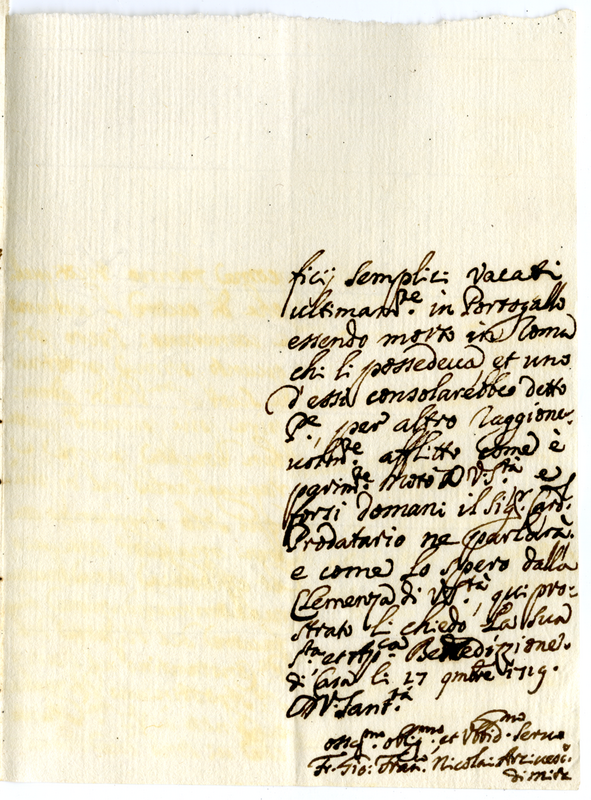 ficij semplici vacati
ultimam.te in Portogallo
essendo morto in Roma
chi li possedeva, et uno
d'essi consolarebbe detto
P.re per altro raggione-
volm.te afflitto come è
parim.te noto a V. S.tà e
forsi domani il Sig.r Card.
Prodatario ne parlarà.
e come lo spero dalla
Clemenza di V. S.tà, qui pro=
strato li chiedo la sua
S.ta et Ap.ca Benedizione.
di Casa li 27 9mbre 1719.
D V. Sant.tà
oss.mo obl.mo et Obbid.mo Servo
Fr. Gio: Fran.co Nicolai Arcivesc.o
di Mira